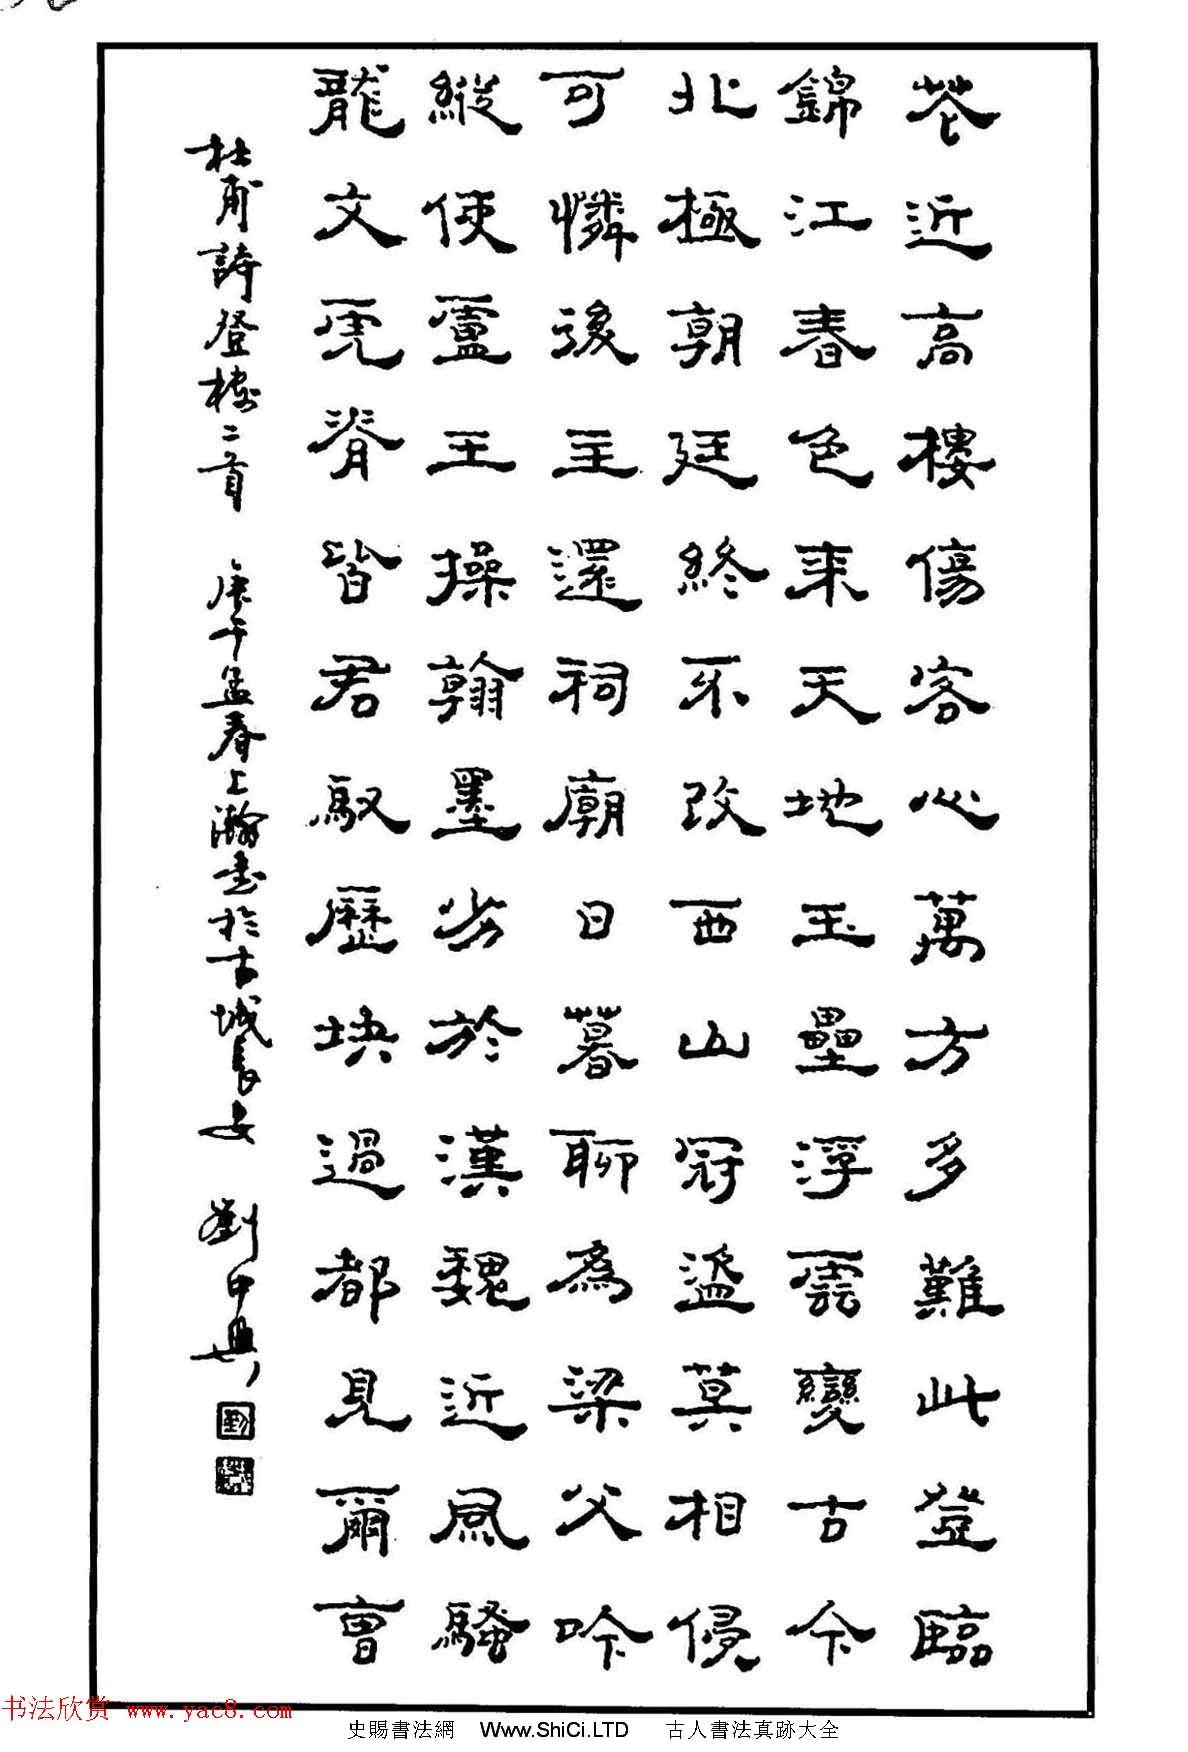 花近高樓傷客心萬方多難此登臨
錦江春色來天地玉壘浮雲變古今
北極朝廷終不改西山冠盜莫相侵
可憐後主還祠廟日暮聊為梁父吟
縱使盧王操翰墨劣於漢魏近風騷
龍文虎脊皆君馭歷塊過都見爾曹
杜甫詩登樓二首 庚午孟春上瀚書於古城長安 劉中興
书法欣赏 www.yac8.com
史賜書法網 Www.ShiCi.LTD 古人書法真跡大全